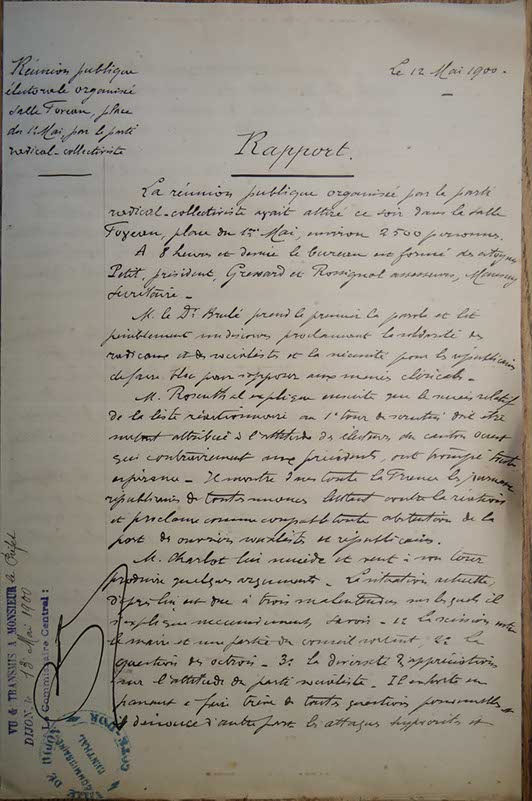 Réunion publique
électorale organisée
Salle Foveau, place
du 1er Mai, par le parti
radical-collectiviste
Le 12 Mai 1900.
Rapport.
La réunion publique organisée par le parti
radical-collectiviste avait attiré ce soir dans la salle
place du 1er Mai, environ 2500 personnes.
A 8 heures et demie le bureau est formé des citoyens
Petit, président, et Rossignol assesseurs,
Secrétaire –
M. le Dr Brulé prend le premier la parole et lit
péniblement un discours proclamant la solidarité des
radicaux et des socialistes et la nécessité pour les républicains
de faire bloc pour s'opposer aux menées cléricales –
M. Rosenthal explique ensuite que le succès relatif
de la liste réactionnaire au 1er tour de scrutin doit être
surtout attribué à l'attitude des électeurs du canton ouest
qui contrairement aux précédents, ont trompé toute
espérance – Il montre dans toute la France les journaux
républicains de toutes nuances luttant contre la réaction
et proclame comme coupable toute abstention de la
part des ouvriers socialistes et républicains.
M. Charlot lui succède et veut à son tour
produire quelques arguments – La situation actuelle,
d'après lui est due à trois malentendus sur lesquels il
s'explique successivement, savoir – 1º la scission entre
le maire et une partie du conseil sortant 2º la
question des octrois – 3º la diversité d'appréciations
sur l'attitude du parti socialiste – Il exhorte en
passant à faire trêve de toutes questions personnelles
et dénonce d'autre part les attaques hypocrites et
VU & TRANSMIS A MONSIEUR le Préfet
DIJON, le 13 Mai 1900
Le Commissaire Central:
COMMISSARIAT CENTRAL
CÔTE D'OR